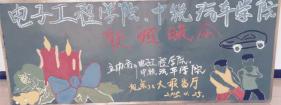 电子工程学院、中锐汽车学院
联欢晚会
主办方：电子工程学院
中锐汽车学院
地点：大报告厅